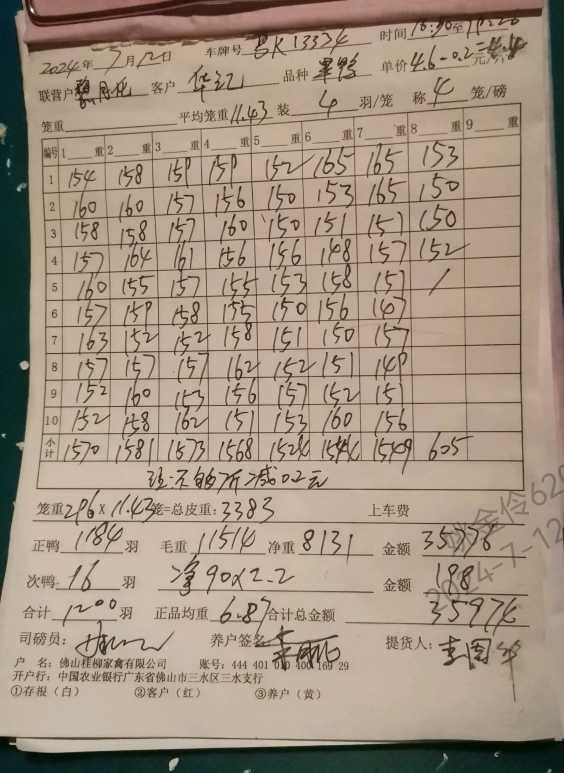 2024年7月12日 车牌号 K13334 时间
联营户 客户 华记 品种 单价4.6-0.2=4.4 元/斤
笼重 平均笼重11.43 装 4 羽/笼 称 4 笼/磅
编号 1 重 2 重 3 重 4 重 5 重 6 重 7 重 8 重 9 重
1 154 158 159 159 152 165 165 153
2 160 160 157 156 150 153 165 150
3 158 158 157 160 150 151 157 150
4 157 164 161 156 156 148 157 152
5 160 155 157 155 153 158 157 /
6 157 159 158 155 150 156 147
7 163 152 152 158 151 150 157
8 157 157 157 162 152 151 149
9 152 160 153 156 157 152 151
10 152 158 162 151 153 160 156
小计 1570 1581 1573 1568 1524 1544 1549 605
注:不够斤减0.2元
笼重296×11.43笼=总皮重:3383 上车费
正鸭 1184 羽 毛重 11514 净重 8131 金额 35776
次鸭 16 羽 净90×2.2 金额 198
合计 1200 羽 正品均重 6.87 合计总金额 35974
司磅员: 养户签名 提货人:
户 名:佛山桂柳家禽有限公司 账号:444 401 010 400 169 29
开户行:中国农业银行广东省佛山市三水区三水支行
①存报(白) ②客户(红) ③养户(黄)
2024-7-12